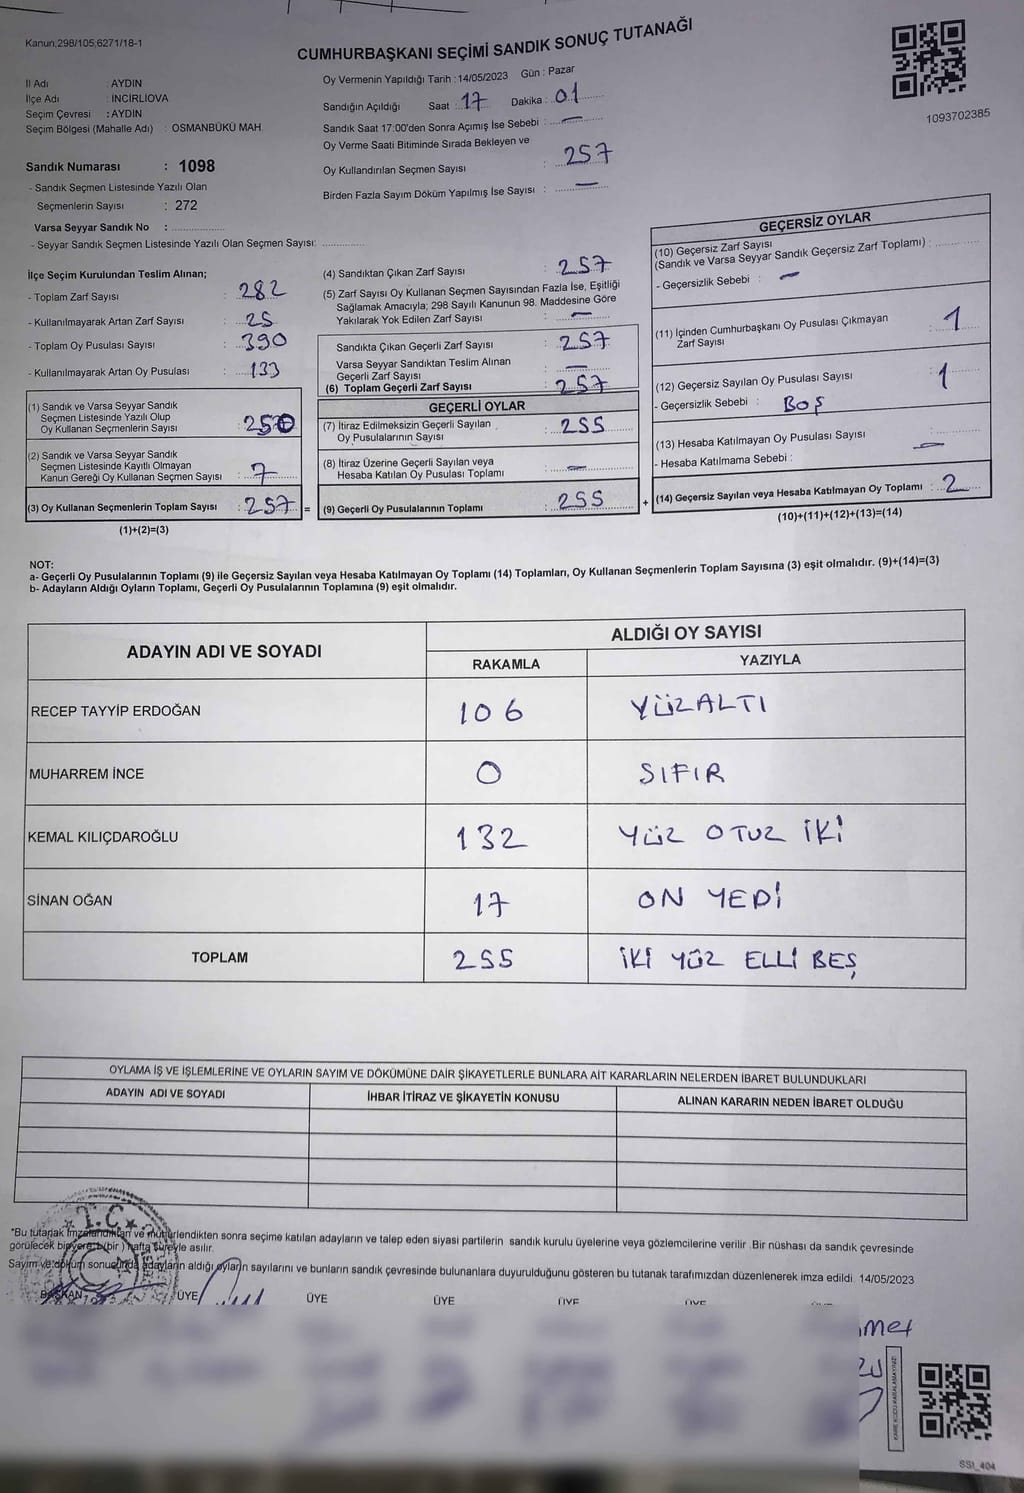 Kanun,298/105,6271/18-1
CUMHURBAŞKANI SEÇİMİ SANDIK SONUÇ TUTANAĞI
1093702385
İl Adı : AYDIN
İlçe Adı : İNCİRLİOVA
Seçim Çevresi : AYDIN
Seçim Bölgesi (Mahalle Adı) : OSMANBÜKÜ MAH.
Sandık Numarası : 1098
- Sandık Seçmen Listesinde Yazılı Olan
Seçmenlerin Sayısı : 272
Varsa Seyyar Sandık No :
- Seyyar Sandık Seçmen Listesinde Yazılı Olan Seçmen Sayısı:
Oy Vermenin Yapıldığı Tarih : 14/05/2023 Gün : Pazar
Sandığın Açıldığı Saat : 17 Dakika : 01
Sandık Saat 17:00'den Sonra Açımış İse Sebebi : —
Oy Verme Saati Bitiminde Sırada Bekleyen ve
Oy Kullandırılan Seçmen Sayısı : 257
Birden Fazla Sayım Döküm Yapılmış İse Sayısı : —
İlçe Seçim Kurulundan Teslim Alınan;
- Toplam Zarf Sayısı : 282
- Kullanılmayarak Artan Zarf Sayısı : 25
- Toplam Oy Pusulası Sayısı : 390
- Kullanılmayarak Artan Oy Pusulası : 133
(1) Sandık ve Varsa Seyyar Sandık
Seçmen Listesinde Yazılı Olup
Oy Kullanan Seçmenlerin Sayısı : 250
(2) Sandık ve Varsa Seyyar Sandık
Seçmen Listesinde Kayıtlı Olmayan
Kanun Gereği Oy Kullanan Seçmen Sayısı : 7
(3) Oy Kullanan Seçmenlerin Toplam Sayısı : 257 =
(1)+(2)=(3)
(4) Sandıktan Çıkan Zarf Sayısı : 257
(5) Zarf Sayısı Oy Kullanan Seçmen Sayısından Fazla İse, Eşitliği
Sağlamak Amacıyla; 298 Sayılı Kanunun 98. Maddesine Göre
Yakılarak Yok Edilen Zarf Sayısı : —
Sandıkta Çıkan Geçerli Zarf Sayısı : 257
Varsa Seyyar Sandıktan Teslim Alınan
Geçerli Zarf Sayısı : —
(6) Toplam Geçerli Zarf Sayısı : 257
GEÇERLİ OYLAR
(7) İtiraz Edilmeksizin Geçerli Sayılan
Oy Pusulalarının Sayısı : 255
(8) İtiraz Üzerine Geçerli Sayılan veya
Hesaba Katılan Oy Pusulası Toplamı : —
(9) Geçerli Oy Pusulalarının Toplamı : 255 +
GEÇERSİZ OYLAR
(10) Geçersiz Zarf Sayısı
(Sandık ve Varsa Seyyar Sandık Geçersiz Zarf Toplamı) :
- Geçersizlik Sebebi : —
(11) İçinden Cumhurbaşkanı Oy Pusulası Çıkmayan
Zarf Sayısı : 1
(12) Geçersiz Sayılan Oy Pusulası Sayısı : 1
- Geçersizlik Sebebi : BOŞ
(13) Hesaba Katılmayan Oy Pusulası Sayısı : —
- Hesaba Katılmama Sebebi :
(14) Geçersiz Sayılan veya Hesaba Katılmayan Oy Toplamı : 2
(10)+(11)+(12)+(13)=(14)
NOT:
a- Geçerli Oy Pusulalarının Toplamı (9) ile Geçersiz Sayılan veya Hesaba Katılmayan Oy Toplamı (14) Toplamları, Oy Kullanan Seçmenlerin Toplam Sayısına (3) eşit olmalıdır. (9)+(14)=(3)
b- Adayların Aldığı Oyların Toplamı, Geçerli Oy Pusulalarının Toplamına (9) eşit olmalıdır.
ADAYIN ADI VE SOYADI ALDIĞI OY SAYISI
RAKAMLA YAZIYLA
RECEP TAYYİP ERDOĞAN 106 YÜZALTI
MUHARREM İNCE 0 SIFIR
KEMAL KILIÇDAROĞLU 132 YÜZ OTUZ İKİ
SİNAN OĞAN 17 ON YEDİ
TOPLAM 255 İKİ YÜZ ELLİ BEŞ
OYLAMA İŞ VE İŞLEMLERİNE VE OYLARIN SAYIM VE DÖKÜMÜNE DAİR ŞİKAYETLERLE BUNLARA AİT KARARLARIN NELERDEN İBARET BULUNDUKLARI
ADAYIN ADI VE SOYADI İHBAR İTİRAZ VE ŞİKAYETİN KONUSU ALINAN KARARIN NEDEN İBARET OLDUĞU
T.C.
*Bu tutanak imzalandıktan ve mühürlendikten sonra seçime katılan adayların ve talep eden siyasi partilerin sandık kurulu üyelerine veya gözlemcilerine verilir .Bir nüshası da sandık çevresinde
görülecek bir yere, b(bir ) hafta süreyle asılır.
Sayım ve döküm sonucunda adayların aldığı oyların sayılarını ve bunların sandık çevresinde bulunanlara duyurulduğunu gösteren bu tutanak tarafımızdan düzenlenerek imza edildi. 14/05/2023
BAŞKAN ÜYE ÜYE ÜYE ÜYE ÜYE
SSI_404